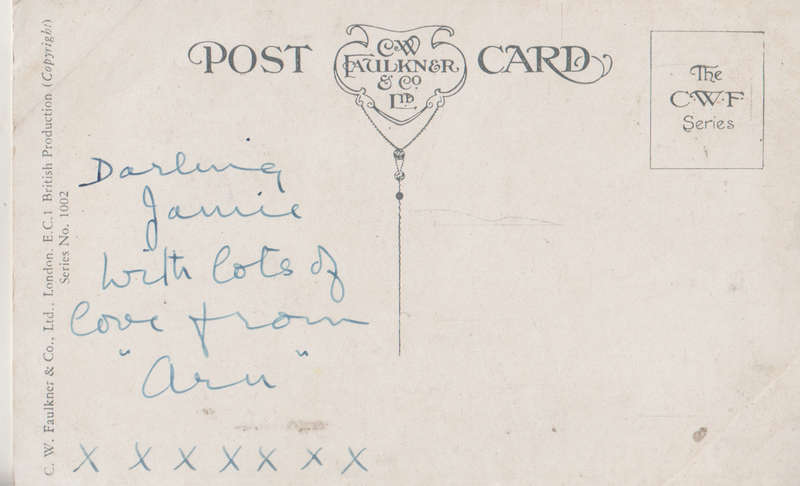 POST CARD
C.W.
FAULKNER
& Co
LTD
The
C.W.F
Series
C. W. Faulkner & Co., Ltd., London, E.C.1 British Production (Copyright)
Series No. 1002
Darling
Jamie
with lots of
love from
"Aru"
X X X X X X X